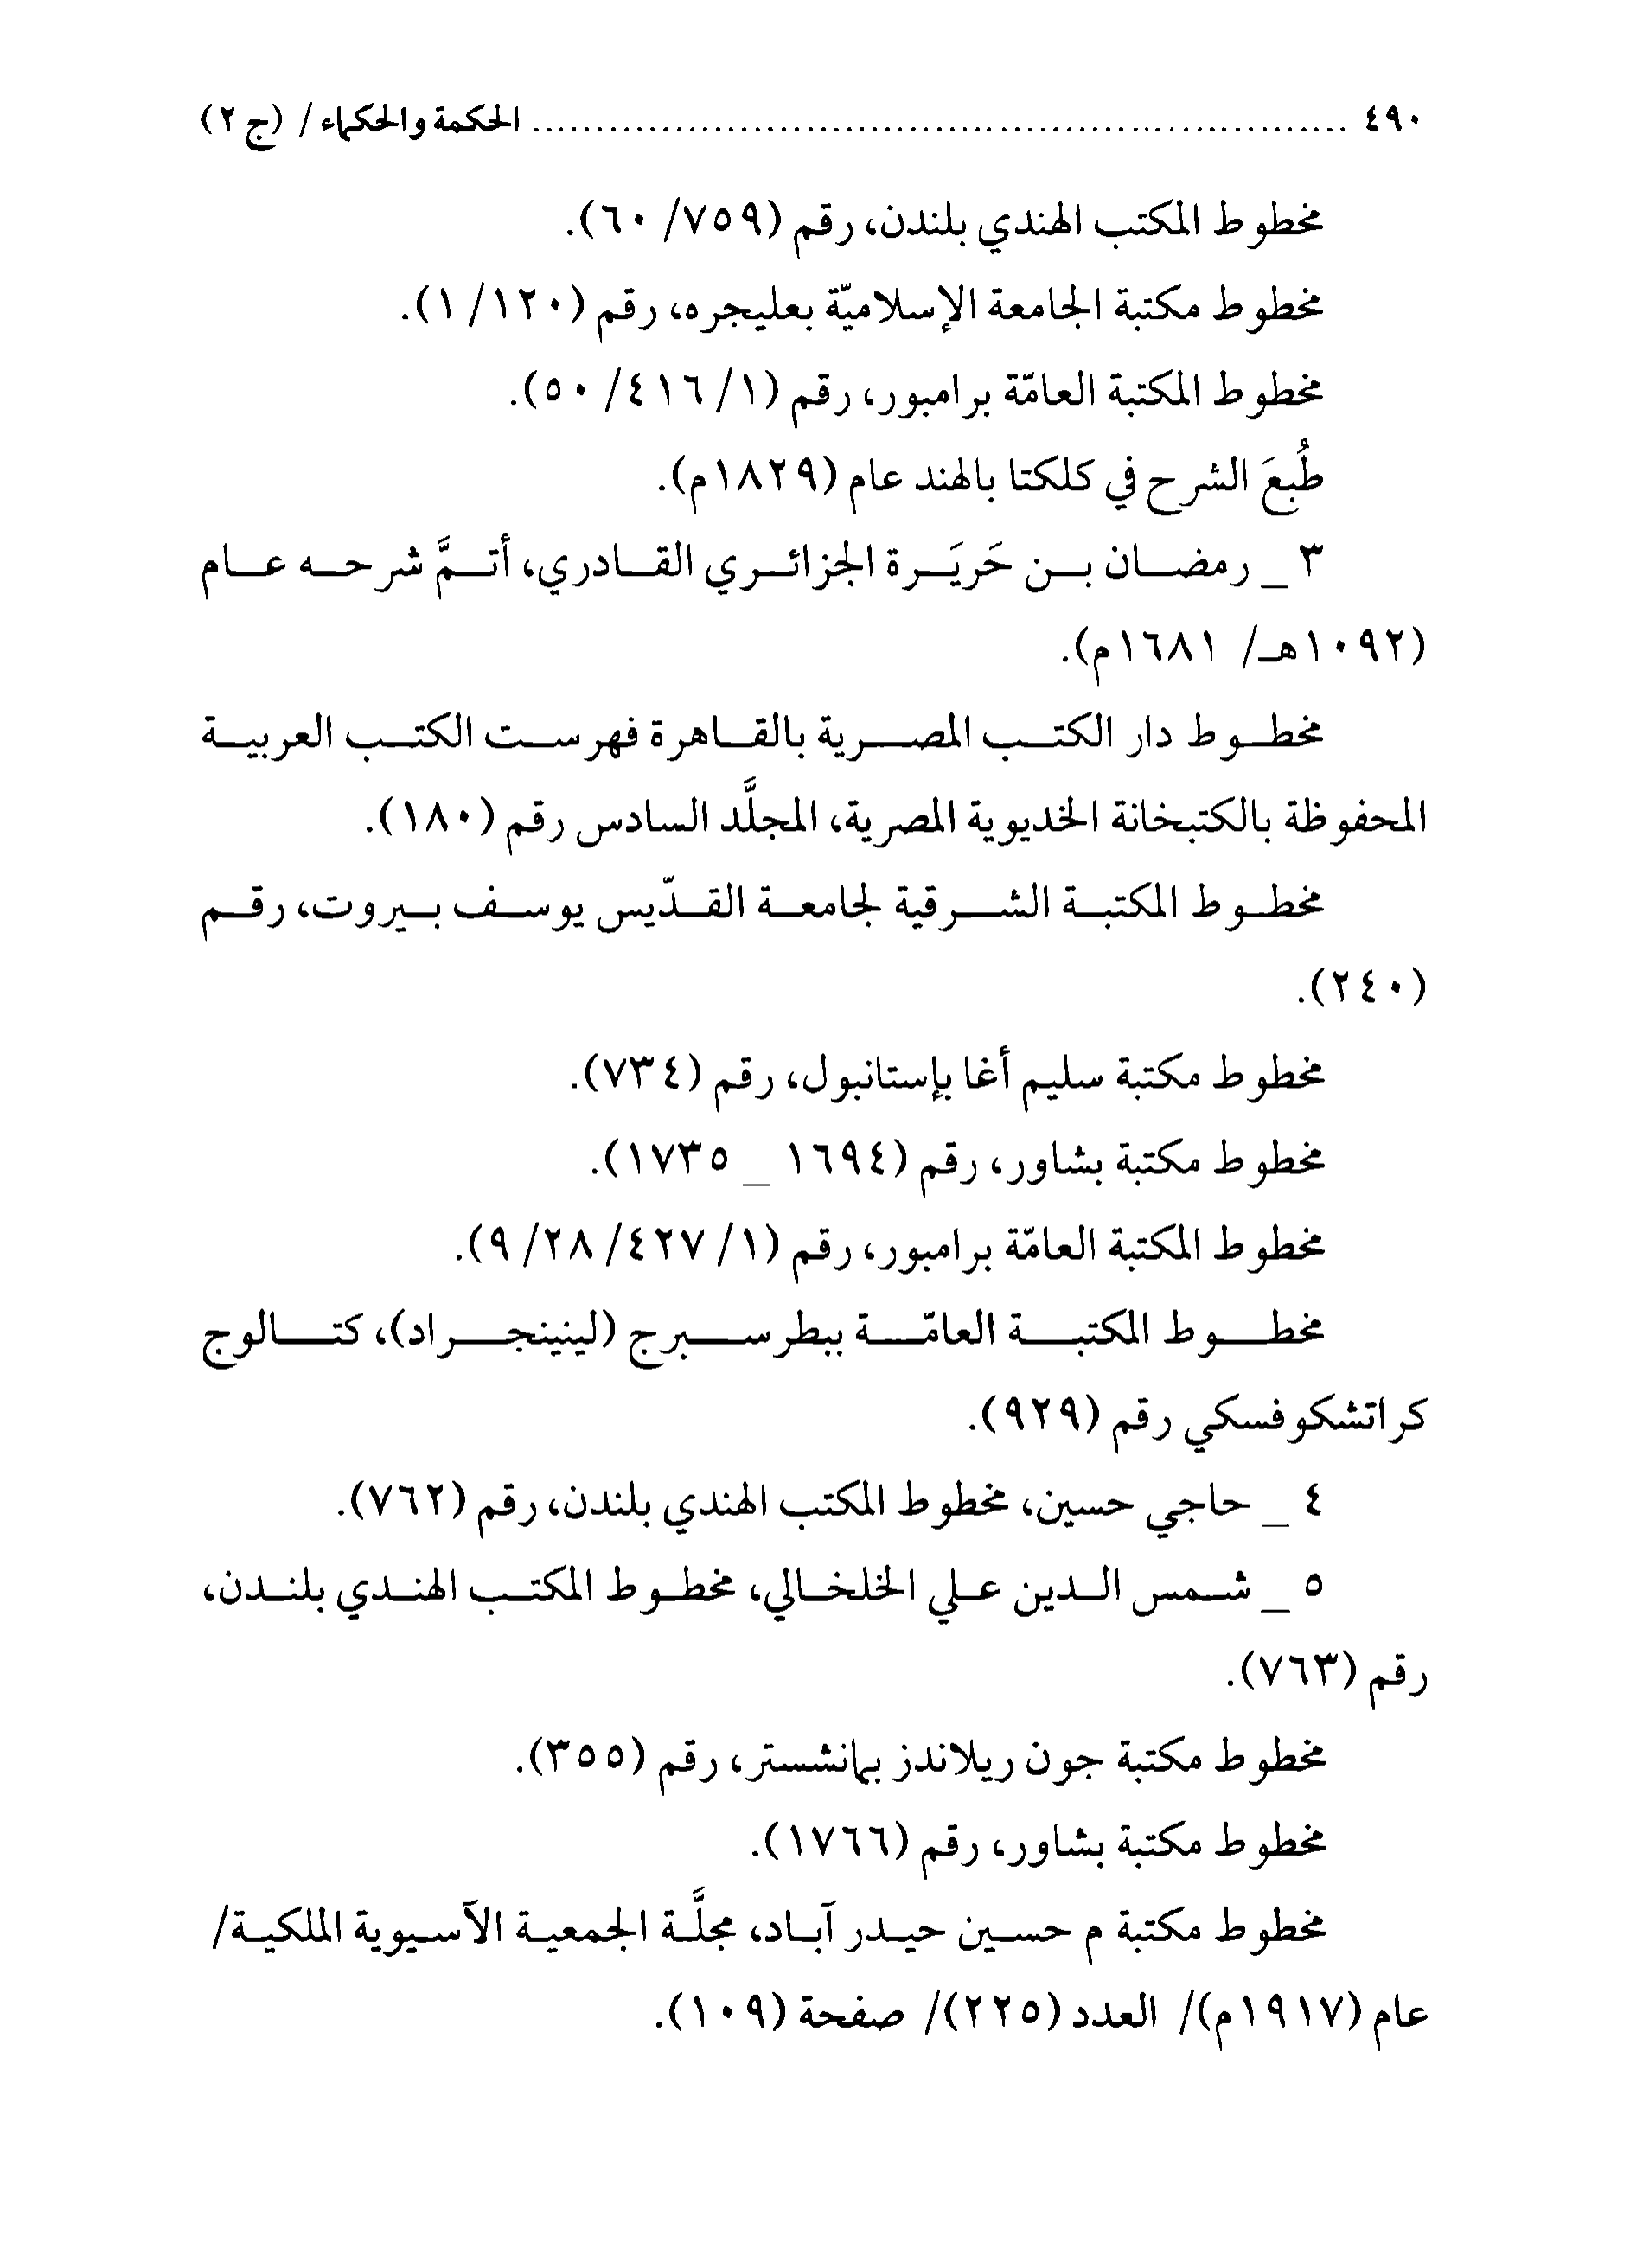 ٤٩٠ ................................................................ الحكمة والحكماء / (ج ٢)
مخطوط المكتب الهندي بلندن، رقم (٧٥٩/ ٦٠).
مخطوط مكتبة الجامعة الإسلاميّة بعليجره، رقم (١٢٠/ ١).
مخطوط المكتبة العامّة برامبور، رقم (١/ ٤١٦/ ٥٠).
طُبعَ الشرح في كلكتا بالهند عام (١٨٢٩م).
٣ _ رمضان بن حَريَرة الجزائري القادري، أتمَّ شرحه عام
(١٠٩٢هـ/ ١٦٨١م).
مخطوط دار الكتب المصرية بالقاهرة فهرست الكتب العربية
المحفوظة بالكتبخانة الخديوية المصرية، المجلَّد السادس رقم (١٨٠).
مخطوط المكتبة الشرقية لجامعة القدّيس يوسف بيروت، رقم
(٢٤٠).
مخطوط مكتبة سليم أغا بإستانبول، رقم (٧٣٤).
مخطوط مكتبة بشاور، رقم (١٦٩٤ _ ١٧٣٥).
مخطوط المكتبة العامّة برامبور، رقم (١/ ٤٢٧/ ٢٨/ ٩).
مخطوط المكتبة العامّة ببطرسبرج (لينينجراد)، كتالوج
كراتشكوفسكي رقم (٩٢٩).
٤ _ حاجي حسين، مخطوط المكتب الهندي بلندن، رقم (٧٦٢).
٥ _ شمس الدين علي الخلخالي، مخطوط المكتب الهندي بلندن،
رقم (٧٦٣).
مخطوط مكتبة جون ريلاندز بمانشستر، رقم (٣٥٥).
مخطوط مكتبة بشاور، رقم (١٧٦٦).
مخطوط مكتبة م حسين حيدر آباد، مجلَّة الجمعية الآسيوية الملكية/
عام (١٩١٧م)/ العدد (٢٢٥)/ صفحة (١٠٩).